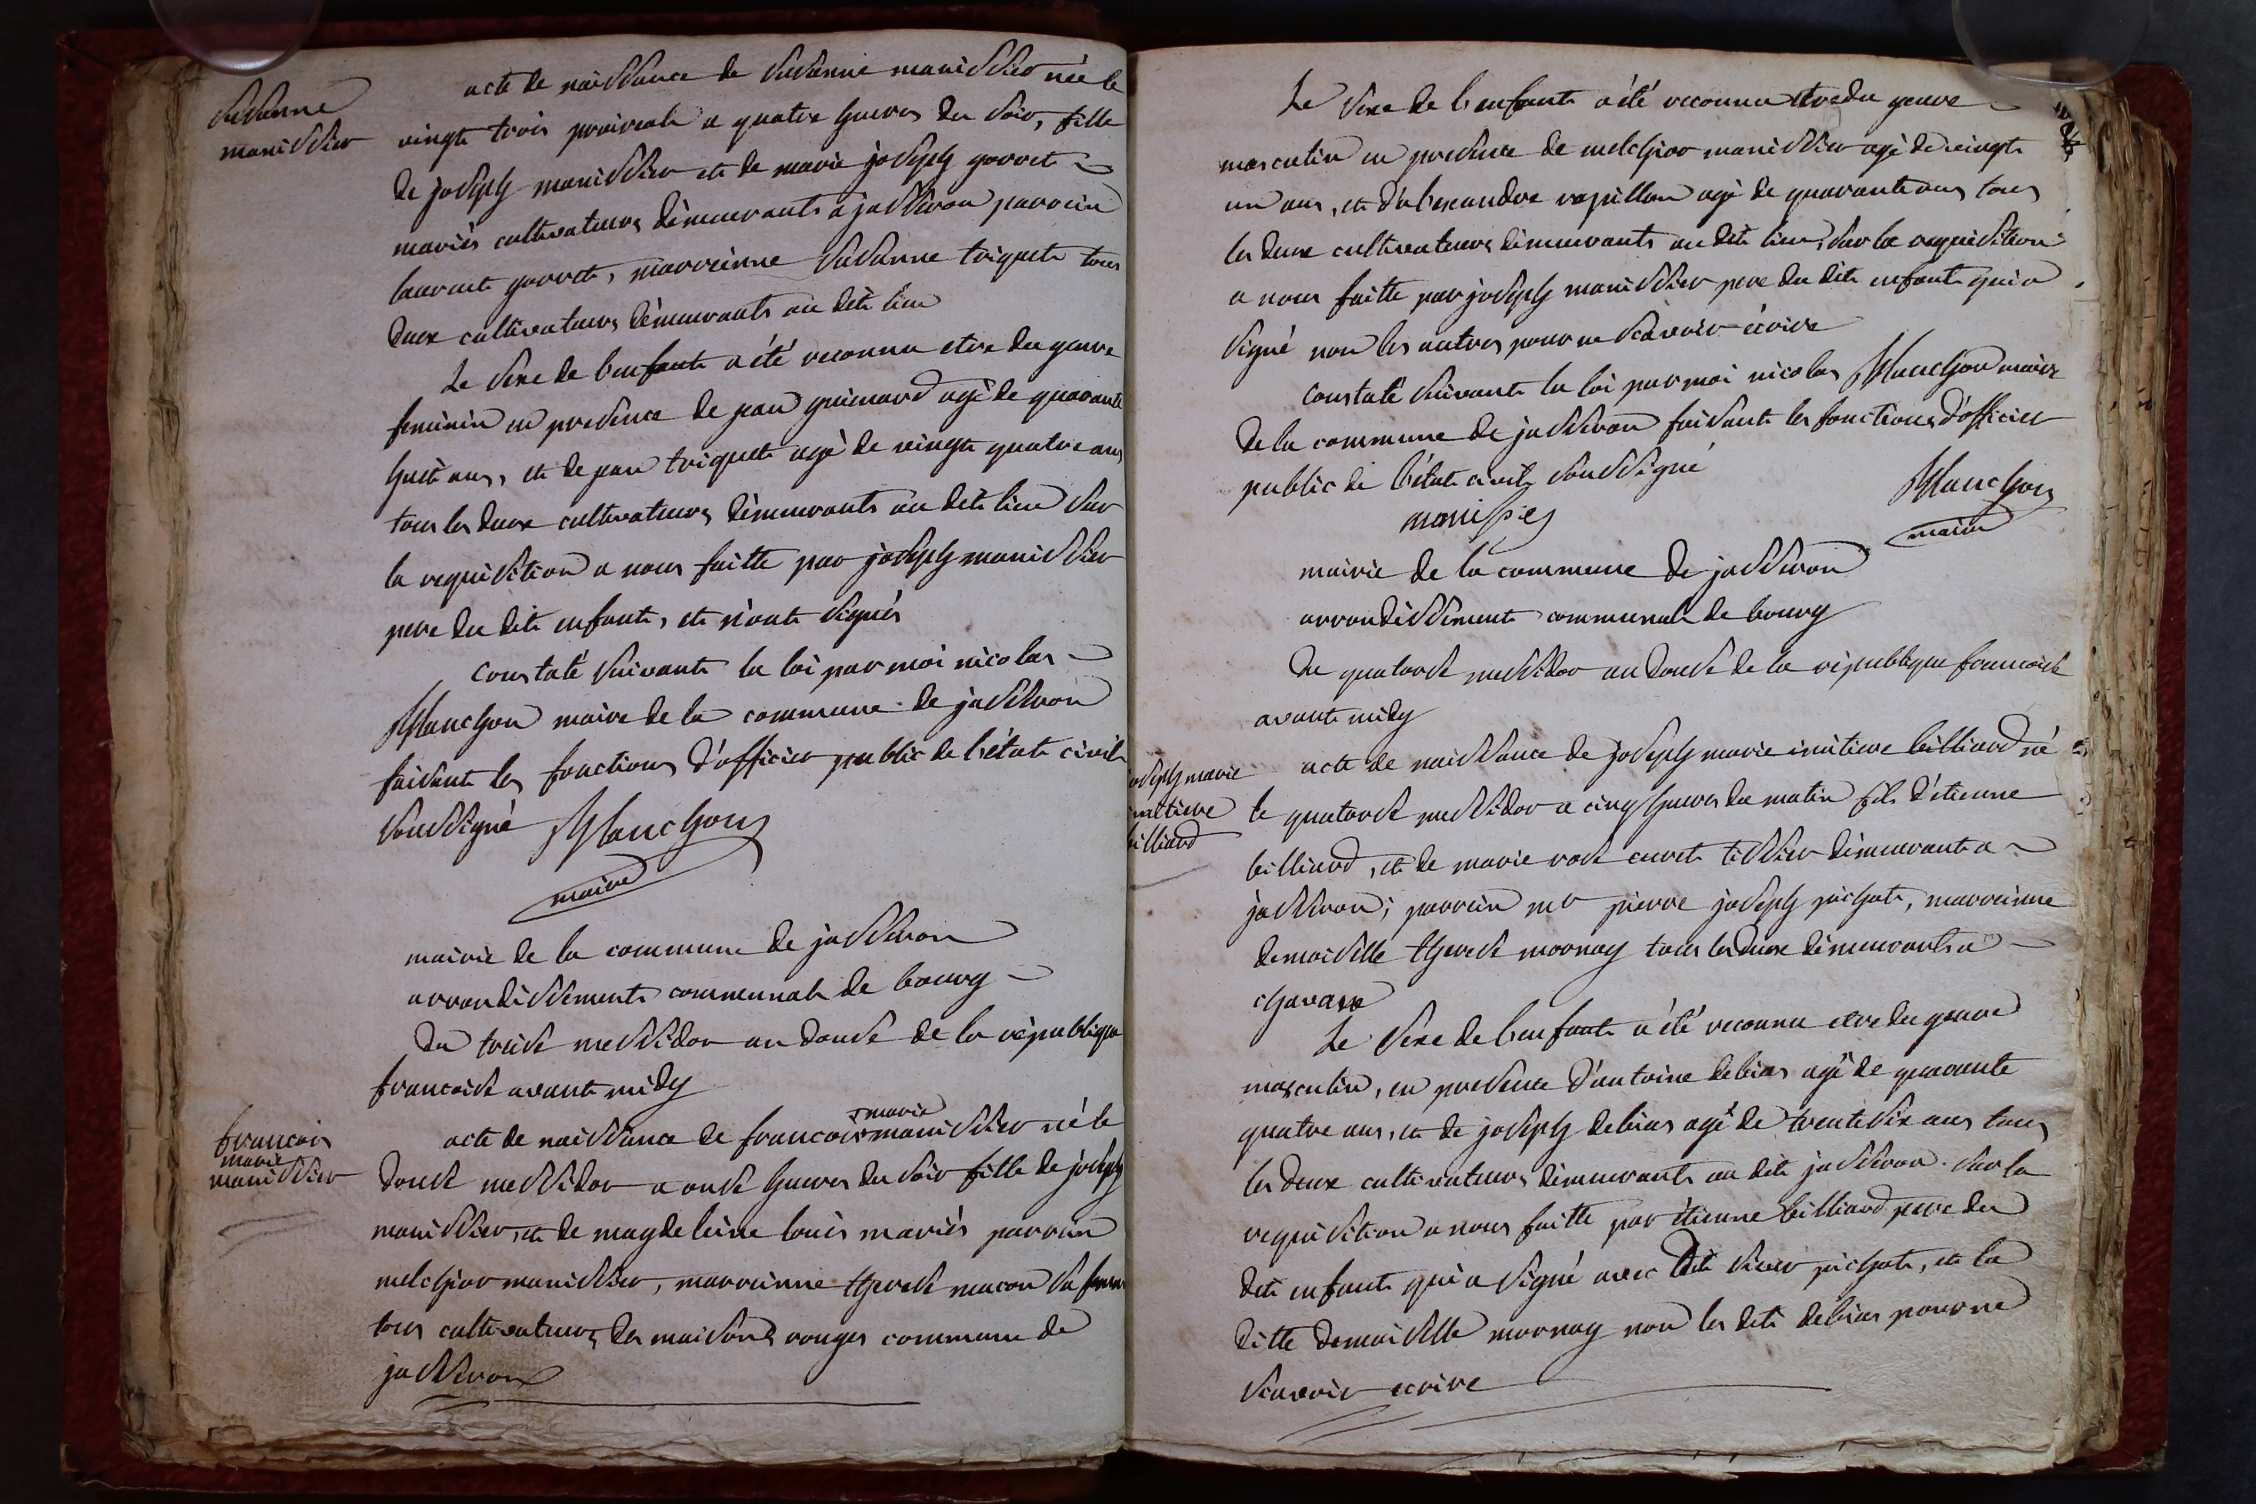 Susanne
manissier
acte de naissance de Susanne manissier née le
vingt trois prairial a quatre heures du soir, fille
de joseph manissier et de marie joseph gorret
mariés cultivateurs démeurants a jasseron parrein
laurent gorret, marreinne Susanne triquet tous
deux cultivateurs démeurants au dit lieu
Le sexe de l'enfant a été reconnu etre du genre
feminin en presence de jean guimard agé de quarante
huit ans, et de jean triquet agé de vingt quatre ans
tous les deux cultivateurs démeurants au dit lieu sur
la requisition a nous faitte par joseph manissier
pere du dit enfant, et n'ont signés
Constaté suivant la loi par moi nicolas
Planchon maire de la commune de jasseron
faisant les fonctions d'officier public de l'état civil
soussigné Planchon
maire
mairie de la commune de jasseron
arrondissement communal de bourg
du treise messidor an douse de la république
francoise avant midy
francois
marie
manissier
marie
acte de naissance de francois manissier né le
douse messidor a onse heures du soir fille de joseph
manissier, et de magdeleine louis mariés parrein
melchior manissier, marreinne therese macon sa femme
tous cultivateurs des maisons rouges commune de
jasseron
Le sexe de l'enfant a été reconnu etre du genre
masculin en presence de melchior manissier agé de vingt
un ans, et d'alexandre rapillon agé de quarante ans tous
les deux cultivateurs démeurants au dit lieu, sur la requisition
a nous faitte par joseph manissier pere du dit enfant qui a
signé non les autres pour ne scavoir écrire
Constaté suivant la loi par moi nicolas Planchon maire
de la commune de jasseron faisant les fonctions d'officier
public de l'état civil soussigné
Planchon
manissier
maire
mairie de la commune de jasseron
arrondissement communal de bourg
du quatorse messidor an douse de la république francoise
avant midy
joseph marie
billiard
acte de naissance de joseph marie billiard né
le quatorse messidor a cinq heures du matin fils d'étienne
billiard, et de marie rose curet tissier démeurant a
jasseron; parrein mr pierre joseph pichat, marreinne
demoiselle therese mornay tous les deux démeurants a
chavanne
Le sexe de l'enfant a été reconnu etre du genre
masculin, en presence d'antoine debias agé de quarante
quatre ans, et de joseph debias agé de trente six ans tous
les deux cultivateurs démeurants au dit jasseron sur la
requisition a nous faitte par étienne billiard pere du
dit enfant qui a signé avec le dit sieur pichat, et la
ditte demoiselle mornay non les dits debias pour ne
scavoir ecrire